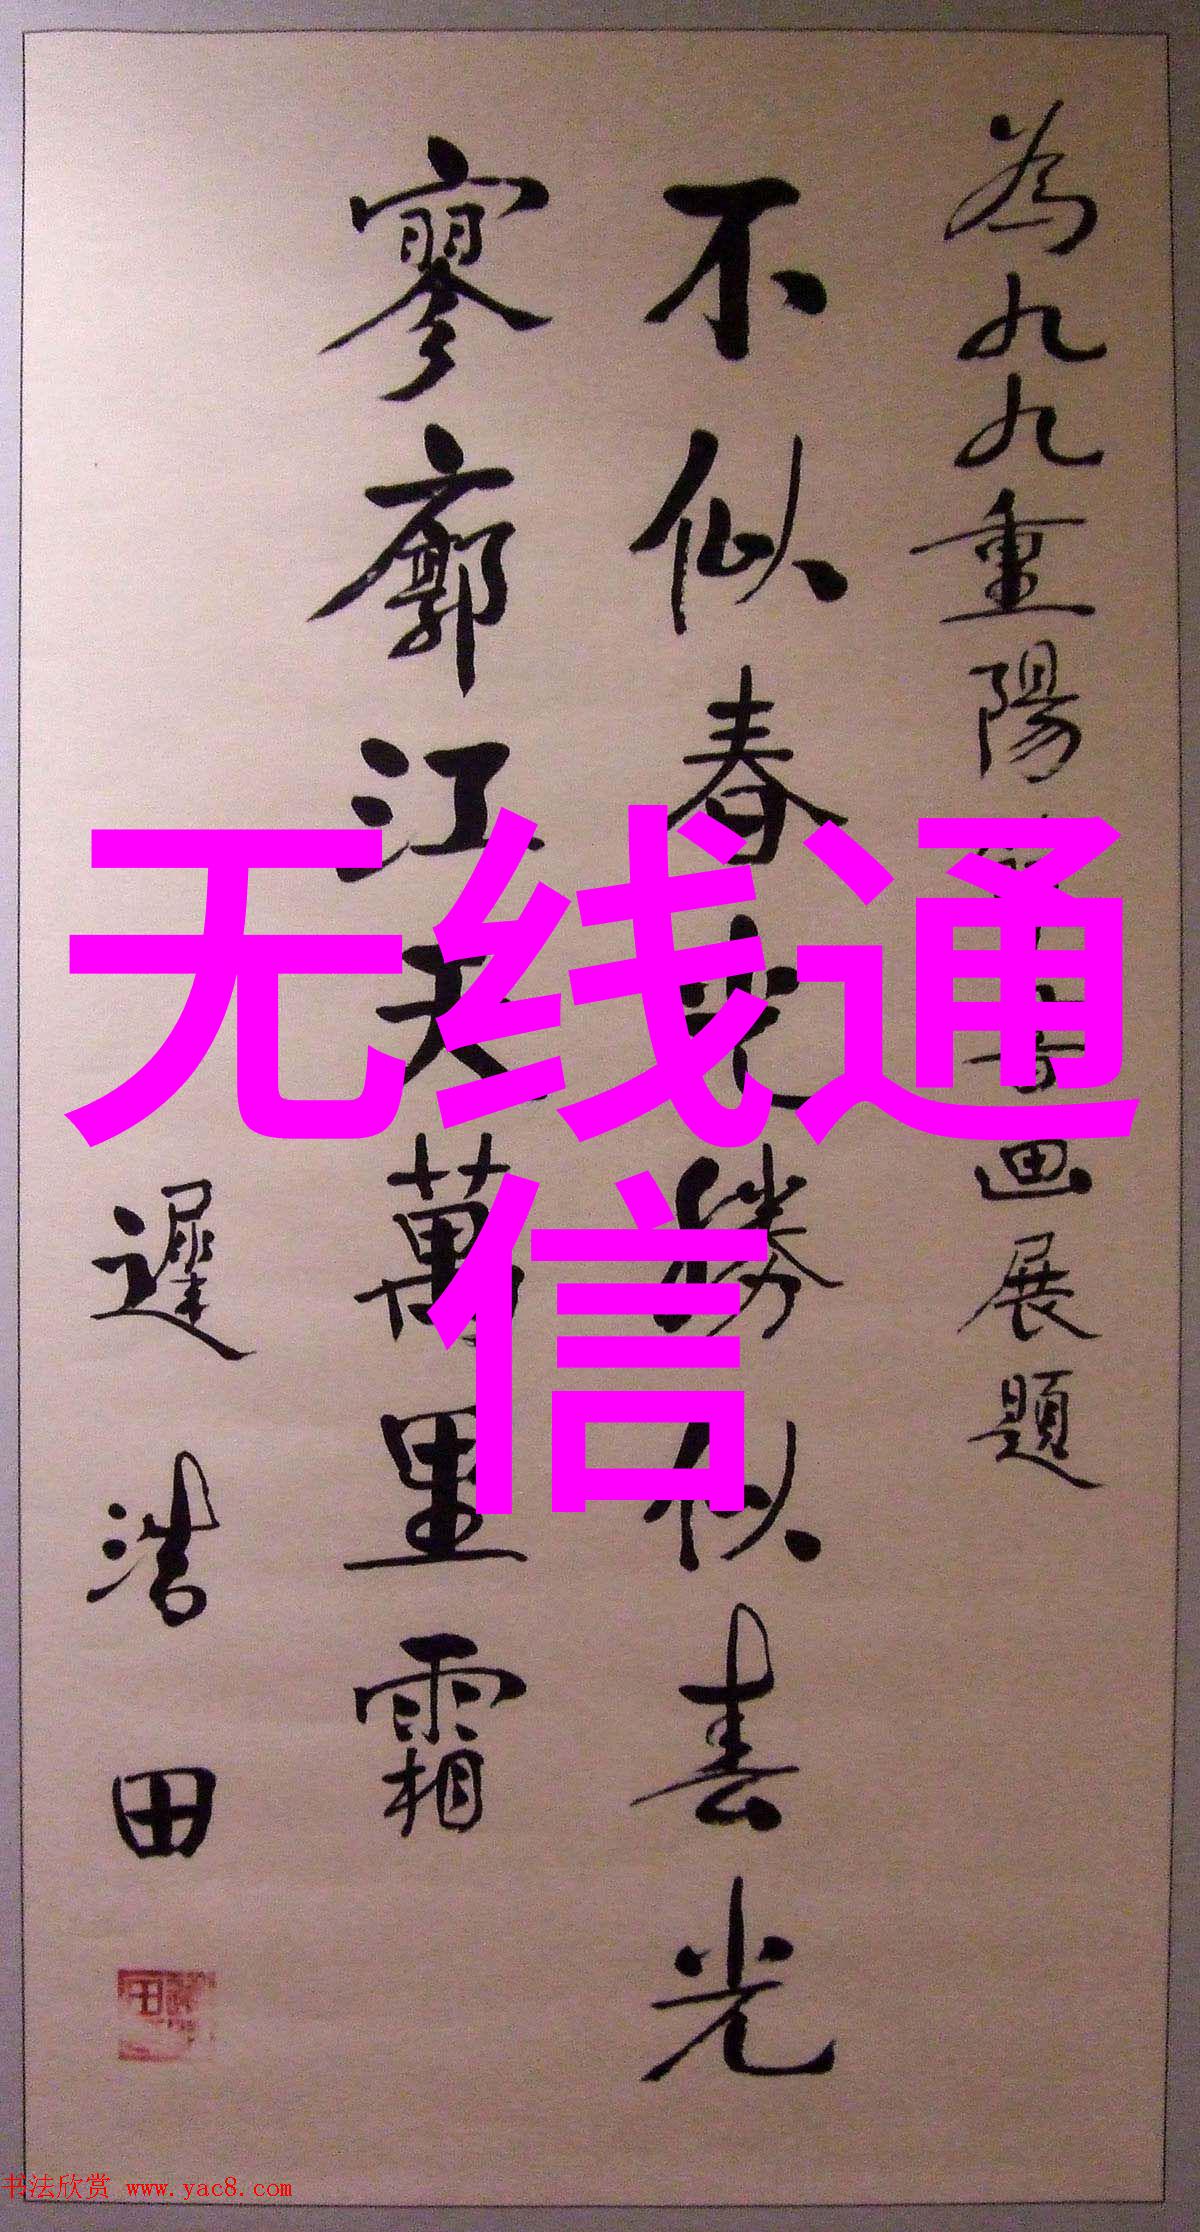 為九九重陽
畫展題
不似春光勝似春光
寥廓江天萬里霜
遲浩田
无线通
信
书法欣赏 www.yac8.com